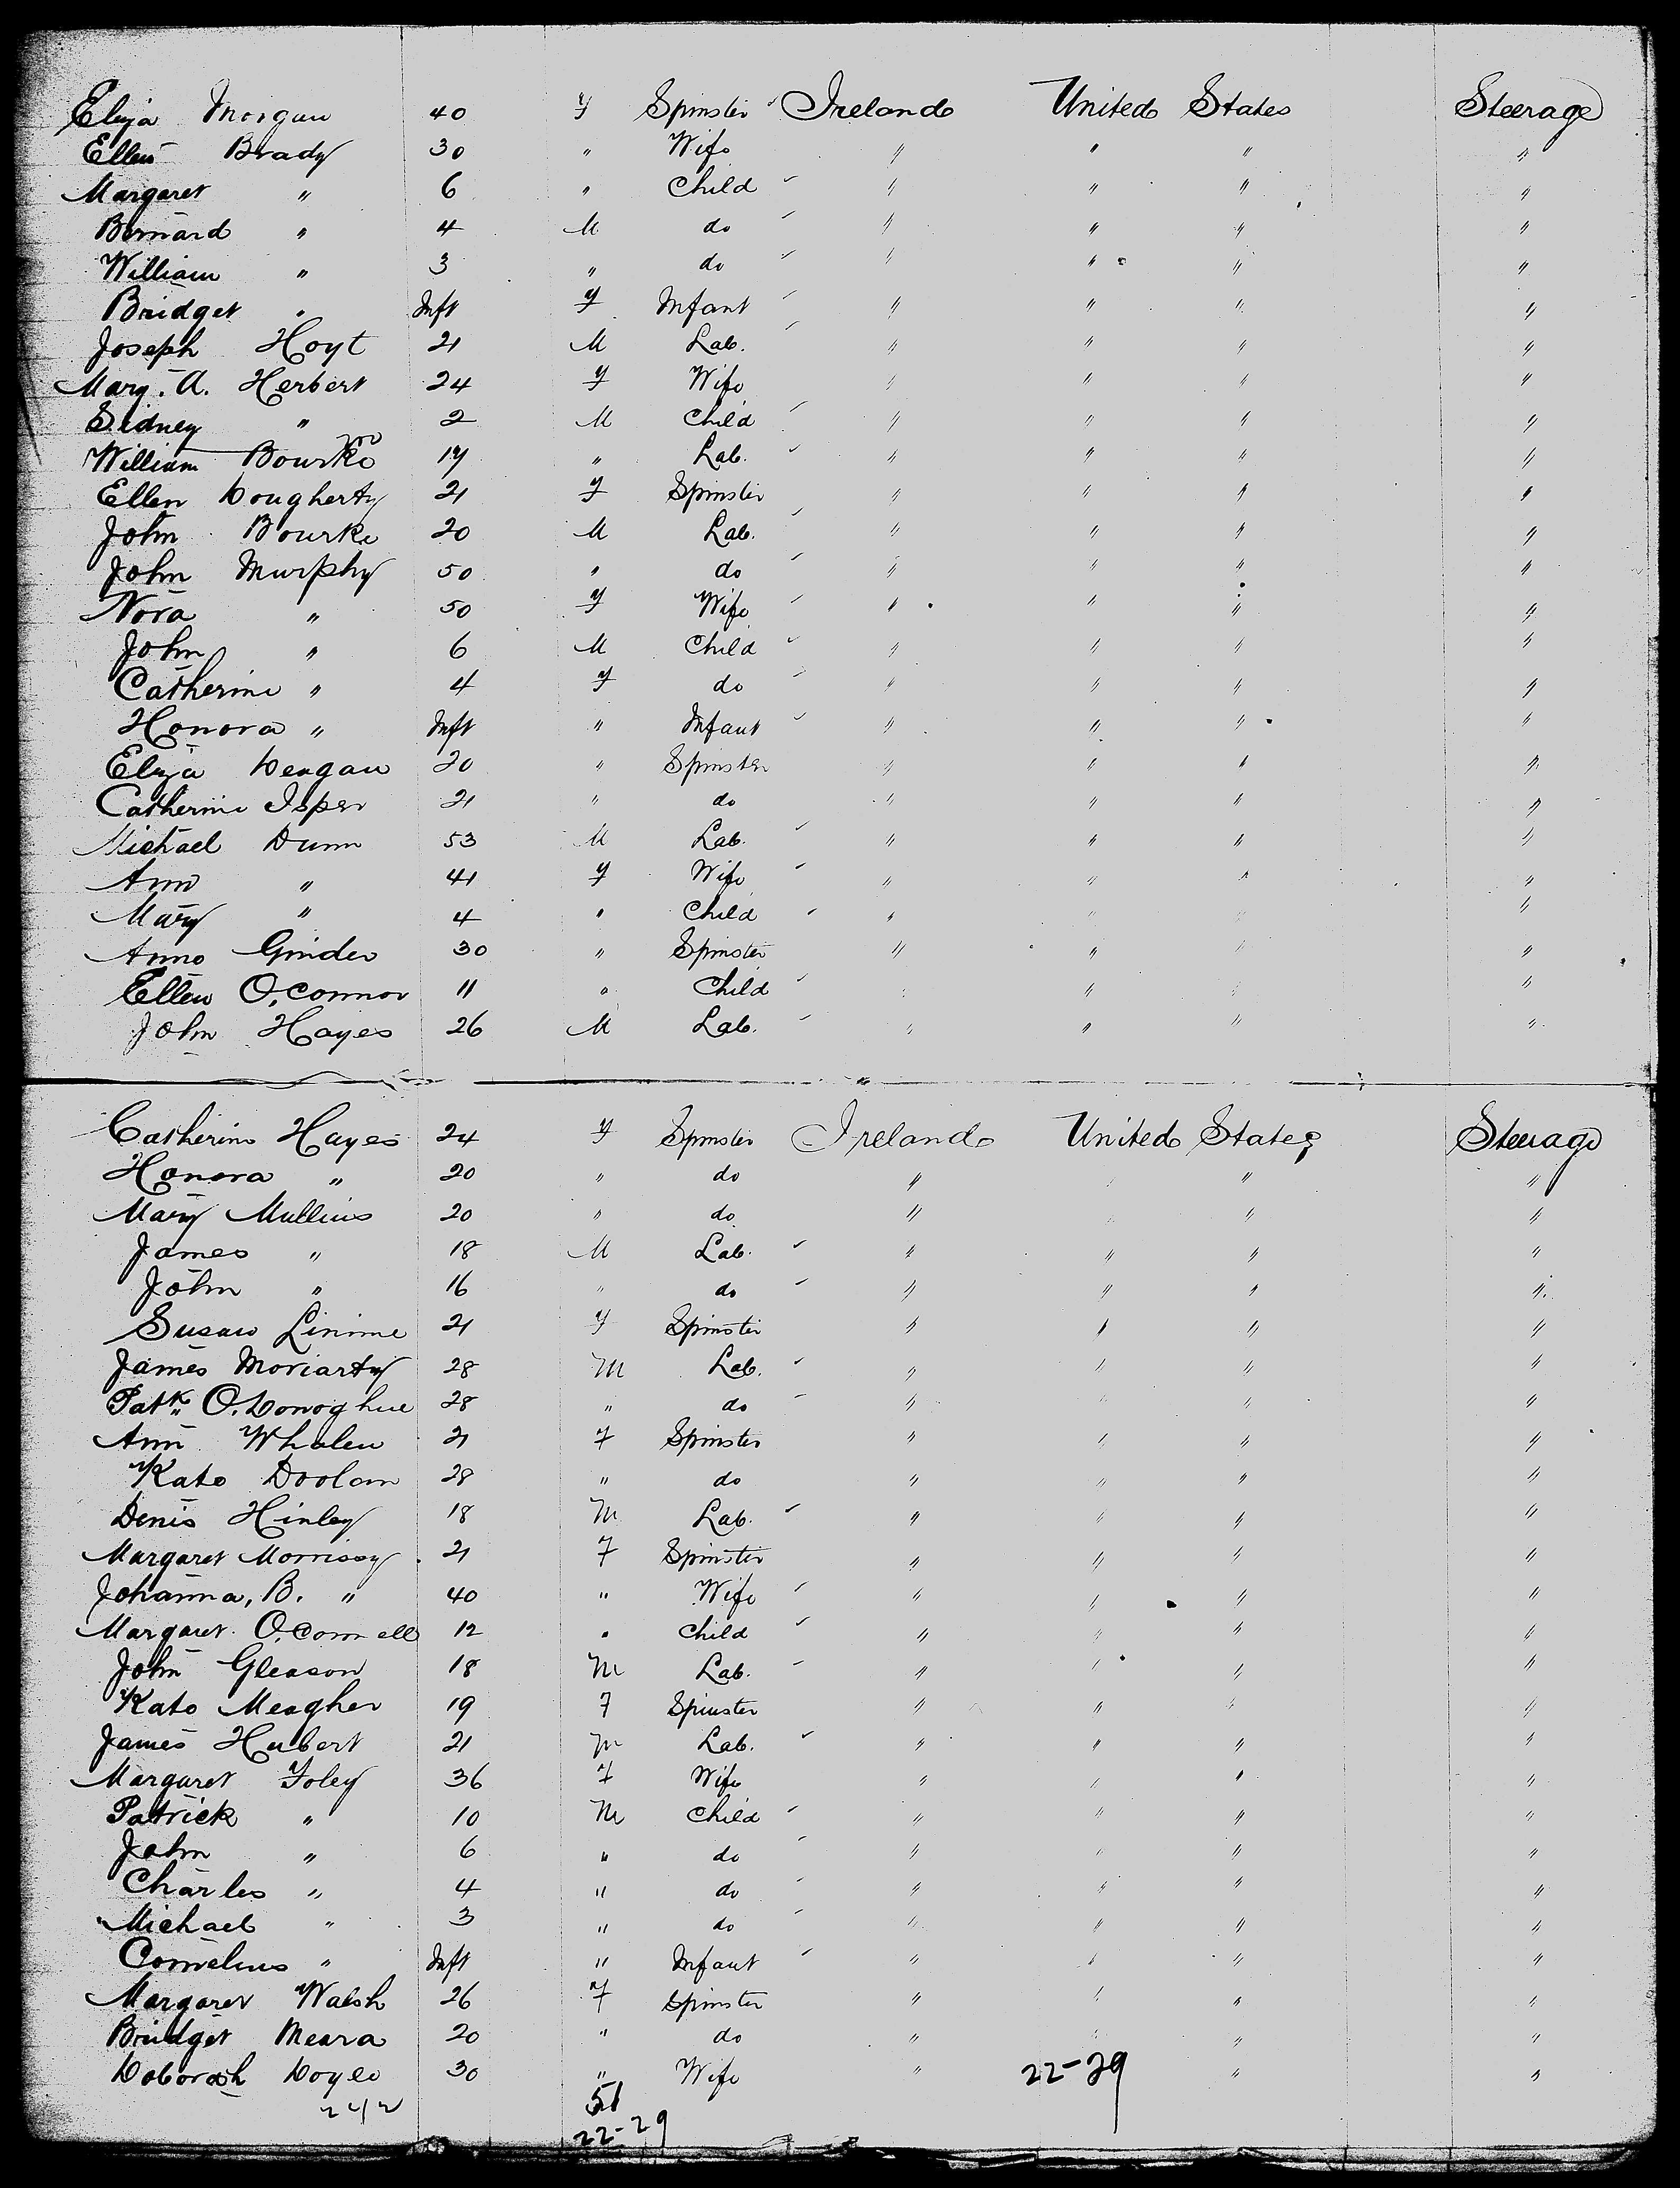 Eliza Morgan 40 F Spinster Ireland United States Steerage
Ellen Brady 30 " Wife " " " "
Margaret " 6 " Child " " " "
Bernard " 4 M do " " " "
William " 3 " do " " " "
Bridget " Inft F Infant " " " "
Joseph Hoyt 21 M Lab. " " " "
Mary. A. Herbert 24 F Wife " " " "
Sidney " 2 M Child " " " "
William Bourke 17 " Lab. " " " "
Ellen Dougherty 21 F Spinster " " " "
John Bourke 20 M Lab. " " " "
John Murphy 50 " do " " " "
Nora " 50 F Wife " " " "
John " 6 M Child " " " "
Catherine " 4 F do " " " "
Honora " Inft " Infant " " " "
Eliza Deagan 20 " Spinster " " " "
Catherine Isper 21 " do " " " "
Michael Dunn 53 M Lab. " " " "
Ann " 41 F Wife " " " "
Mary " 4 " Child " " " "
Anne Ginder 30 " Spinster " " " "
Ellen O.Connor 11 " Child " " " "
John Hayes 26 M Lab. " " " "
Catherine Hayes 24 F Spinster Ireland United States Steerage
Honora " 20 " do " " " "
Mary Mullins 20 " do " " " "
James " 18 M Lab. " " " "
John " 16 " do " " " "
Susan 21 F Spinster " " " "
James Moriarty 28 M Lab. " " " "
Patk. O.Donoghue 28 " do " " " "
Ann Whalen 21 F Spinster " " " "
Kate Doolan 28 " do " " " "
Denis Hinley 18 M Lab. " " " "
Margaret Morrissy 21 F Spinster " " " "
Johanna, B. " 40 " Wife " " " "
Margaret O.Connell 12 " Child " " " "
John Gleason 18 M Lab. " " " "
Kate Meagher 19 F Spinster " " " "
James Hubert 21 M Lab. " " " "
Margaret Foley 36 F Wife " " " "
Patrick " 10 M Child " " " "
John " 6 " do " " " "
Charles " 4 " do " " " "
Michael " 3 " do " " " "
Cornelius " Inft " Infant " " " "
Margaret Walsh 26 F Spinster " " " "
Bridget Meara 20 " do " " " "
Deborah Doyle 30 " Wife " 22-29 " "
242 51
22-29